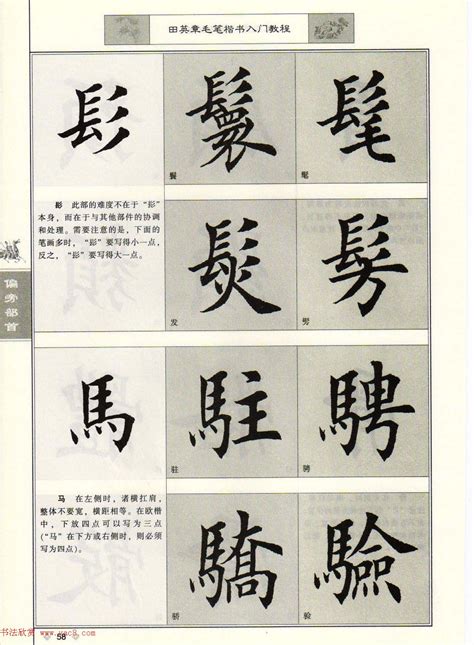 田英章毛笔楷书入门教程
偏旁部首
髟 鬟 髦
鬟 髦
髟 此部的难度不在于“髟”
本身，而在于与其他部件的协调
和处理。需要注意的是，下面的
笔画多时，“髟”要写得小一点，
反之，“髟”要写得大一点。
髮
发
馬 駐 騁
驻 骋
马 在左侧时，诸横扛肩，
整体不要宽，横距相等。在欧楷
中，下放四点可以写为三点
（“马”在下方或右侧时，则必须
写为四点）。
驕 驗
骄 验
书法欣赏 www.yac8.com
58